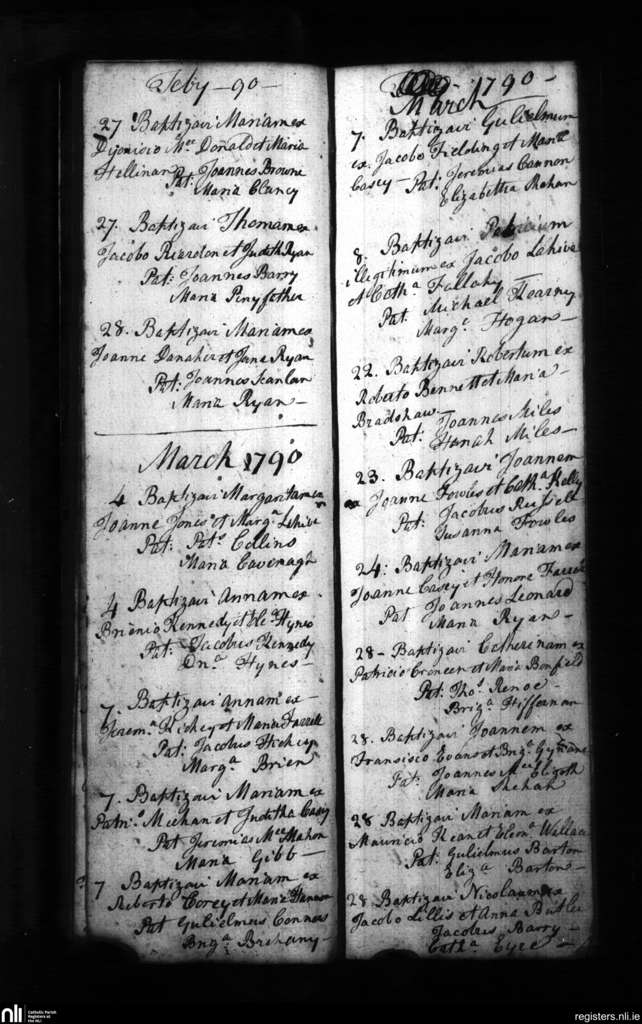 Feby - 90 -
27 Baptizavi Mariam ex
Dijonicio Mcc Donald et Maria
Hellinan Pat: Joannes Browne
Maria Clancy
27. Baptizavi Thomam ex
Jacobo Riardon et Judith Ryan
Pat: Joannes Barry
Maria Pinyfether
28. Baptizavi Mariam ex
Joanne Danaher et Jana Ryan
Pat: Joannes Scanlan
Maria Ryan -
March 1790
4 Baptizavi Margaritam ex
Joanne Jones et Marga Lehive
Pat: Pats Collins
Maria Cavenagh
4 Baptizavi Annam ex
Brienio Kennedy et Hynes
Pat: Jacobus Kennedy
Dna Hynes -
7. Baptizavi annam ex -
Jerema Hickey et Maria Farrell
Pat: Jacobus Hickey
Marga Brien
7. Baptizavi Mariam ex
Patrio Meehan et Juditha Casey
Pat Jeremias Mcc Mahon
Maria Gibb -
7 Baptizavi Mariam ex
Roberto Corey et Maria
Pat Gulielmus Connors
Briga Brehany -
1790 -
March
7. Baptizavi Gulielmum
ex Jacobo Fielding et Maria
Casey - Pat: Jeremias Cannon
Elizabetha Mahan
8. Baptizavi Patricium
illegitimum ex Jacobo Lahive
et Catha Fallahy
Pat Michael Kearney
Marge Hogan -
22. Baptizavi Robertum ex
Roberto Bennett et Maria -
Bradshaw.
Pat: Joannes Miles
Hanah Miles -
23. Baptizavi Joannem
ex Joanne Fowles et Catha Kelly
Pat: Jacobus Russell
Susanna Fowles
24: Baptizavi Mariam ex
Joanne Casey et Honore
Pat Joannes Leonard
Maria Ryan -
28 - Baptizavi Catherinam ex
Patricio Croneen et Maria Bonfield
Pat: Thos Renoe -
Briga Hiffernan
28. Baptizavi Joannem ex
Francisco Evans et Briga
Pat: Joannes Mcc
Maria Shehah
28 Baptizavi Mariam ex
Mauricio Kean et Eleona Wallace
Pat: Gulielmus Barton
Eliza Barton -
28 Baptizavi Nicolaum ex
Jacobo Lillis et Anna Butler
Jacobus Barry -
Catha Eyre -
nli Catholic Parish
Registers at
the NLI
registers.nli.ie